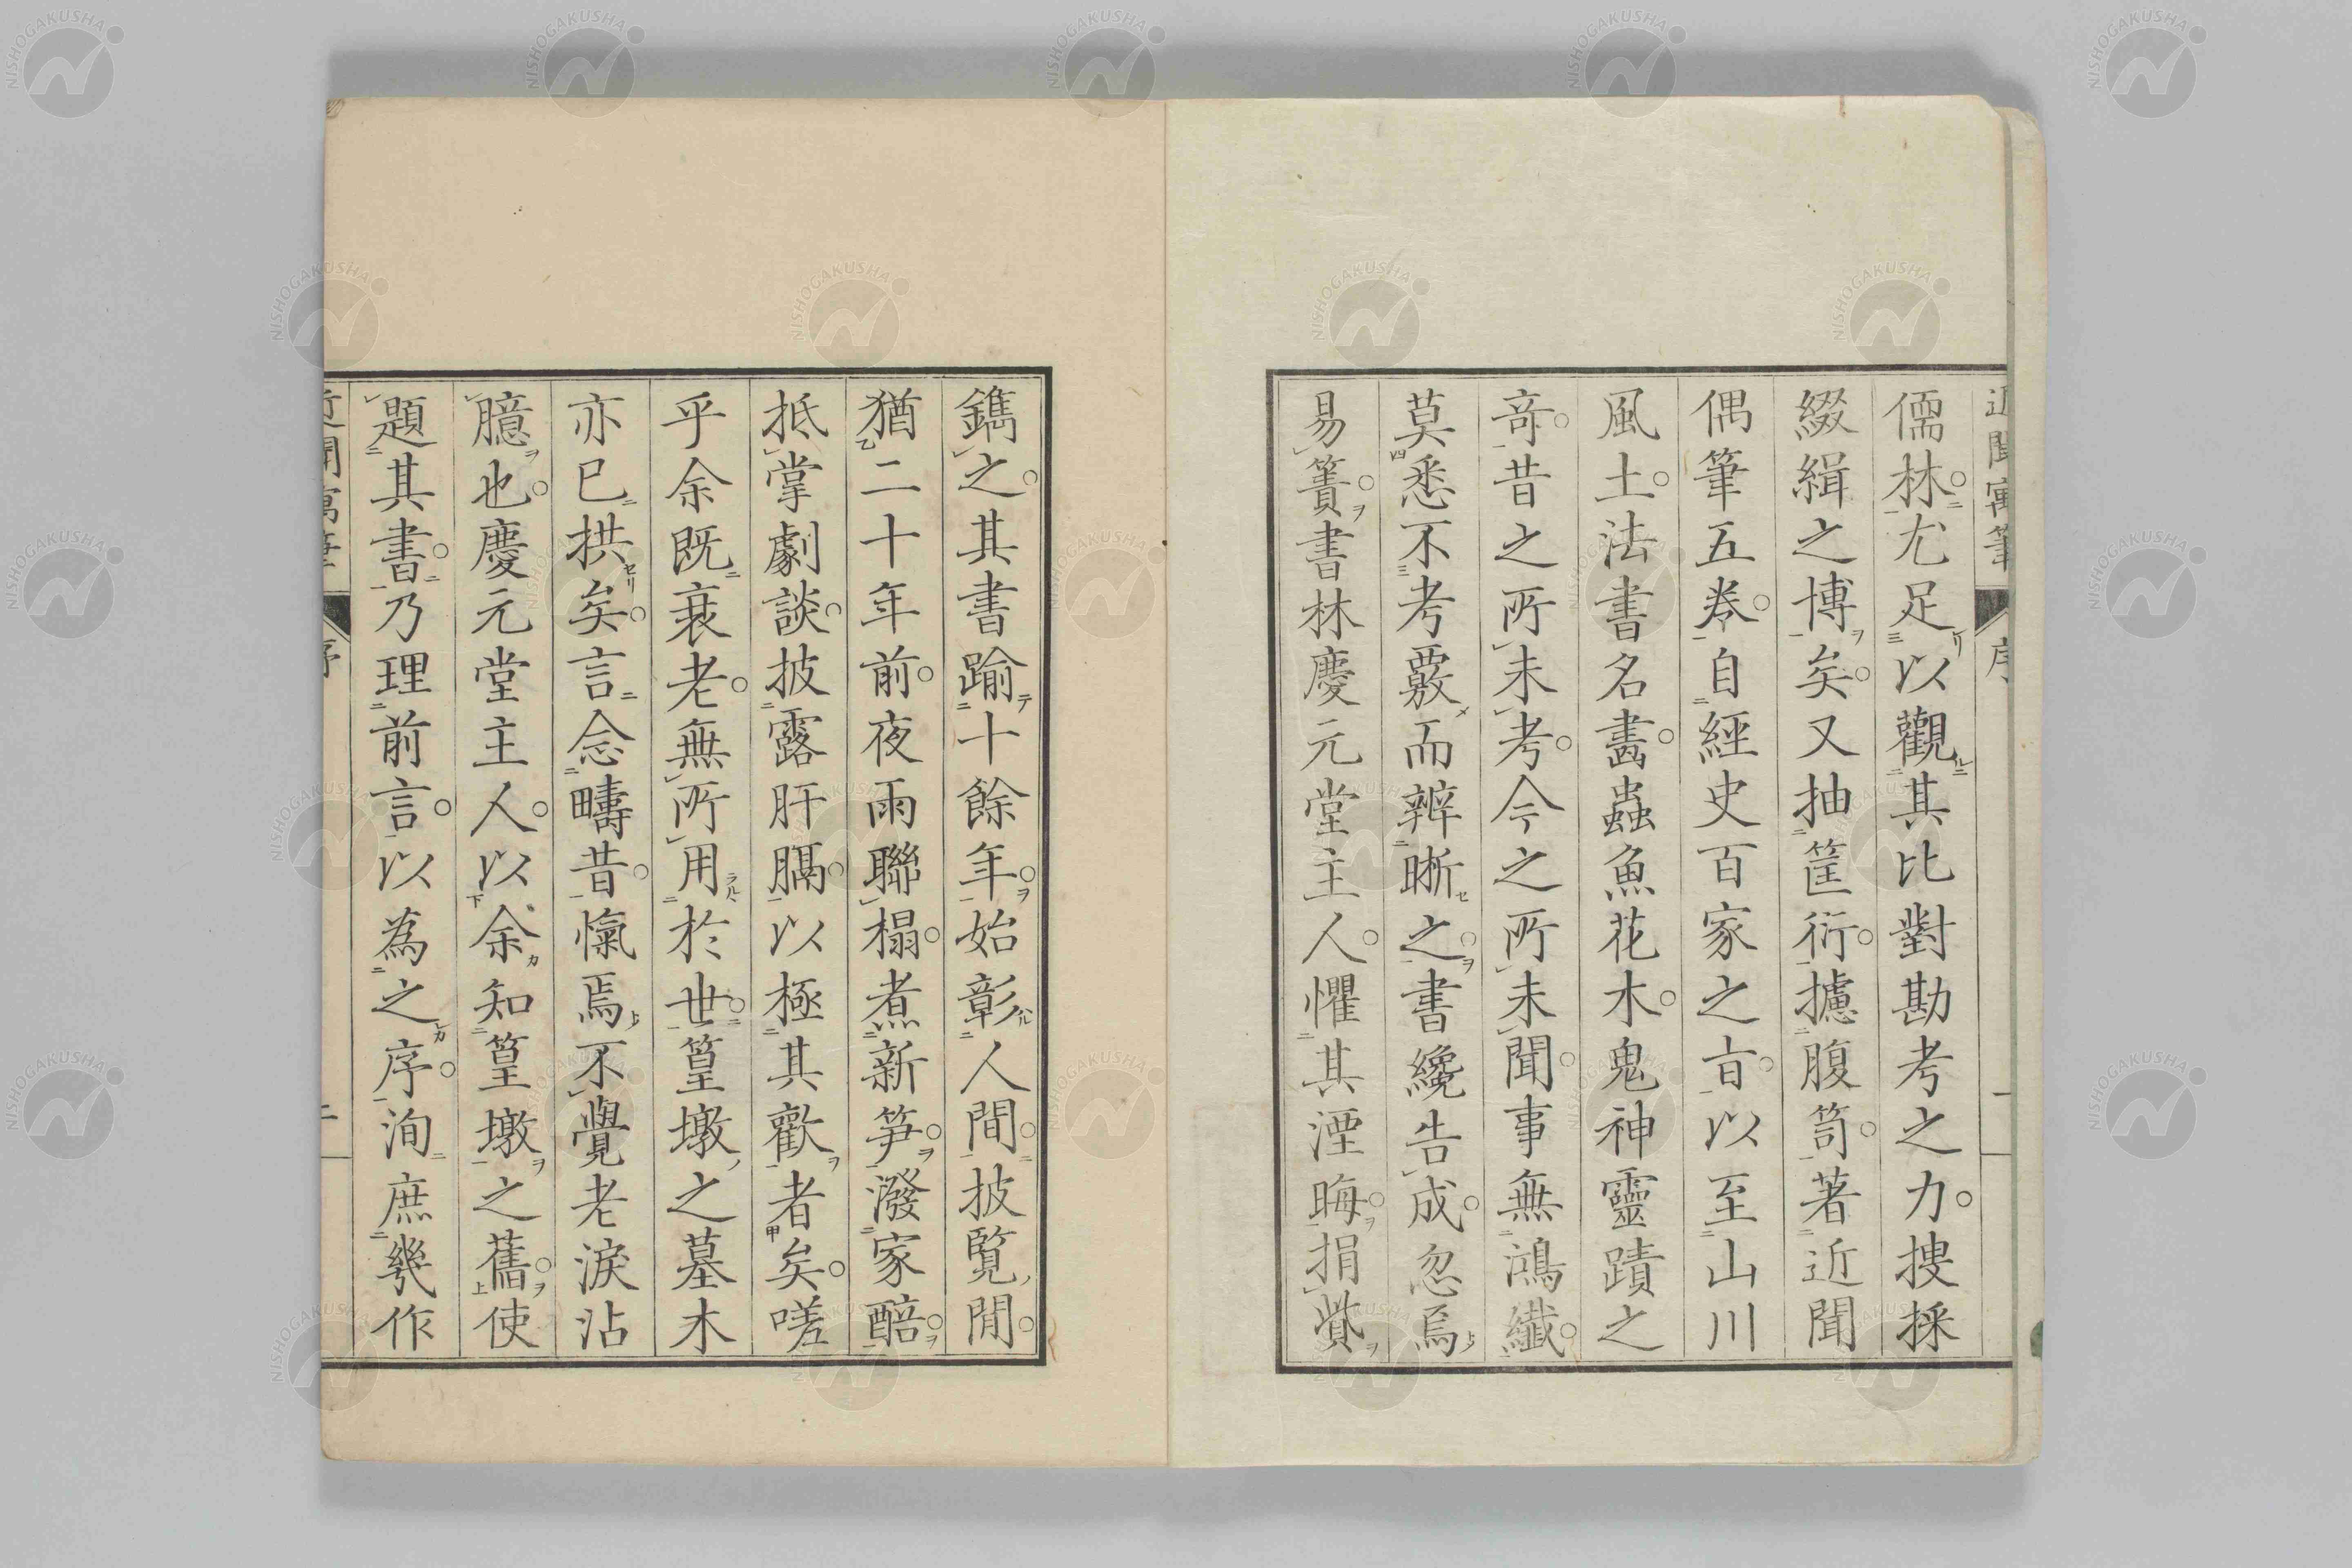 近聞寓筆 序 一
儒林尤足以觀其比對勘考之力搜採
綴緝之博矣又抽筐衍攄腹笥著近聞
偶筆五卷自經史百家之言以至山川
風土法書名畫蟲魚花木鬼神靈蹟之
竒昔之所未考今之所未聞事無鴻纖
莫悉不考覈而辨晣之書纔告成忽焉
易簀書林慶元堂主人懼其湮晦捐貲
鐫之其書踰十餘年始彰人間披覧間
猶二十年前夜雨聯榻煮新笋潑家醅
抵掌劇談披露肝膈以極其歡者矣嗟
乎余既衰老無所用於世篁墩之墓木
亦已拱矣言念疇昔愾焉不覺老淚沾
臆也慶元堂主人以余知篁墩之舊使
題其書乃理前言以為之序洵庶幾作
近聞寓筆 序 二
NISHOGAKUSHA